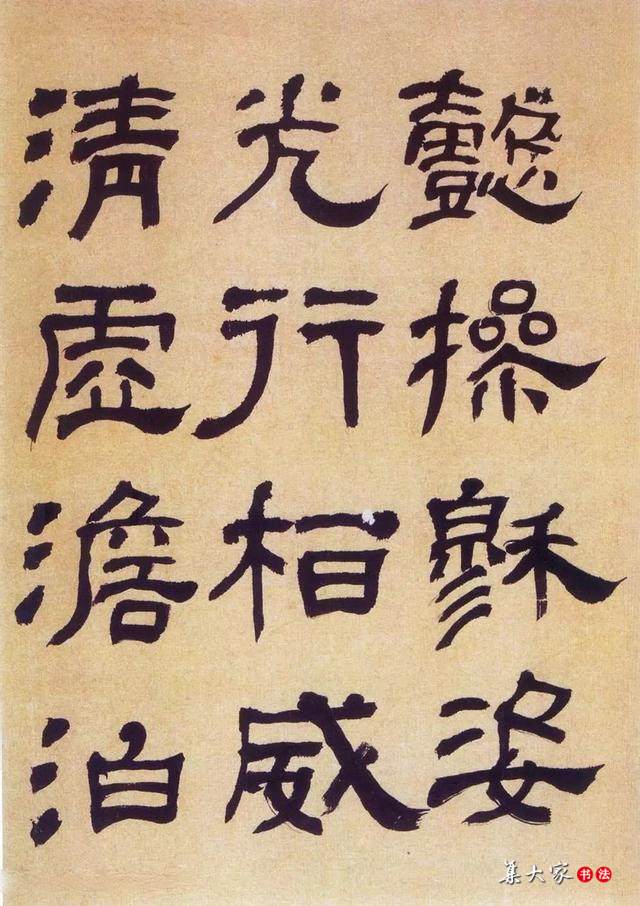 懿操穆姿
光行相威
清虛澹泊
集大家书法